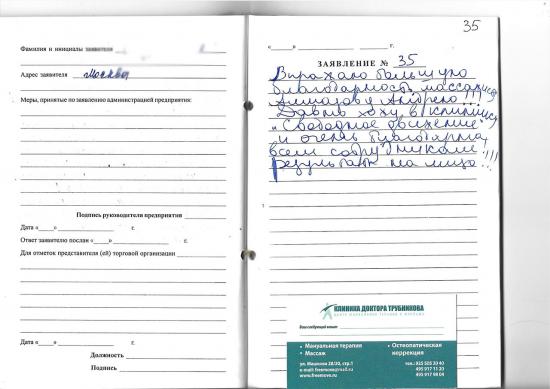 Фамилия и инициалы заявителя
Адрес заявителя Москва
Меры, принятые по заявлению администрацией предприятия:
Подпись руководителя предприятия
Дата « » г.
Ответ заявителю послан « » г.
Для отметок представителя (ей) торговой организации
Дата « » г.
Должность
Подпись
35
« » г.
ЗАЯВЛЕНИЕ № 35
Выражаю большую
благодарность массажисту
Андрею !!!
Давно хожу в клинику
"Свободное движение"
и очень благодарна
всем сотрудникам!
Результат на лицо !!!
КЛИНИКА ДОКТОРА ТРУБНИКОВА
Ваш следующий визит
Мануальная терапия
Массаж
Остеопатическая
коррекция
495 917 11 20
495 917 98 04
www.freemove.ru